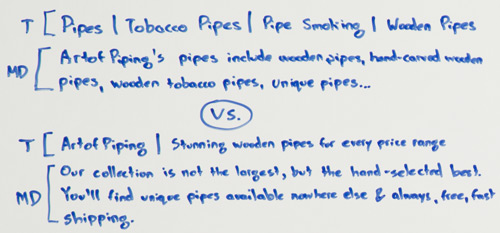 T [ Pipes | Tobacco Pipes | Pipe Smoking | Wooden Pipes
MD [ ArtofPiping's pipes include wooden pipes, hand-carved wooden
pipes, wooden tobacco pipes, unique pipes...
VS.
T [ ArtofPiping | Stunning wooden pipes for every price range
MD [ Our collection is not the largest, but the hand-selected best.
You'll find unique pipes available nowhere else & always, free, fast
shipping.